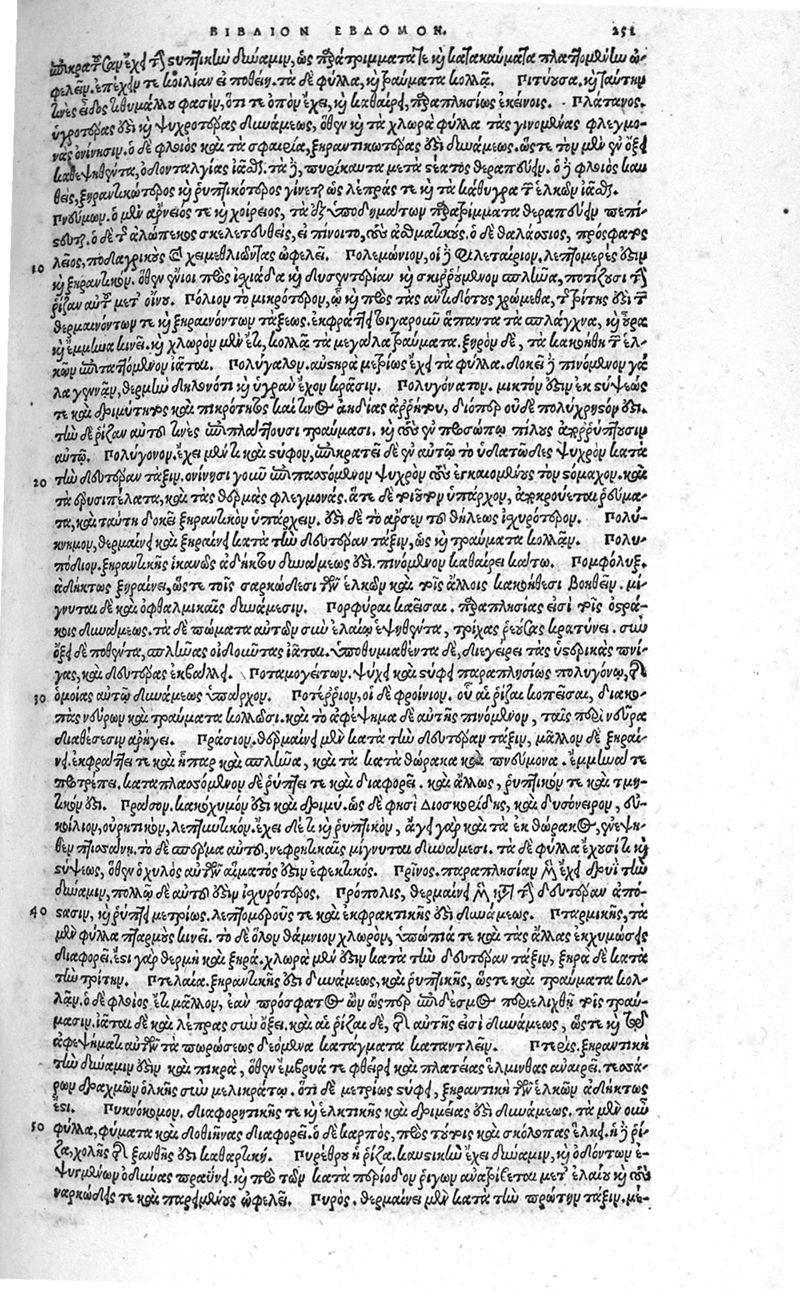 ΒΙΒΛΙΟΝ ΕΒΔΟΜΟΝ. 251
φελεῖν. ἐπέχειν τε κοιλίαν ἐποθεῖν. τὰ δὲ φύλλα, καὶ τραύματα κολλᾷ. Πιτύουσα. καὶ ταύτην
τινὲς εἶδος τιθυμάλλου φασὶν, ὅτι τε ὀπὸν ἔχει, καὶ καθαίρει, παραπλησίως ἐκείνοις. Πλάτανος.
ὑγροτέρας ἐστὶ καὶ ψυχροτέρας δυνάμεως, ὅθεν καὶ τὰ χλωρὰ φύλλα τὰς γινομένας φλεγμο-
νὰς ὀνίνησιν. ὁ δὲ φλοιὸς καὶ τὰ σφαιρία, ξηραντικωτέρας ἐστὶ δυνάμεως. ὥστε τὸν μὲν σὺν ὄξει
καθεψηθέντα, ὀδονταλγίας ἰᾶσθαι. τὰ δὲ, πυρίκαυτα μετὰ στέατος θεραπεύειν. ὁ δὲ φλοιὸς καυ-
θεὶς, ξηραντικώτερος καὶ ῥυπτικότερος γίνεται ὡς λέπρας τε καὶ τὰ κάθυγρα τῶν ἑλκῶν ἰᾶσθαι.
Πνεύμων. ὁ μὲν ἄρνειος τε καὶ χοίρειος, τὰ ἐξ ὑποδημάτων παρατρίμματα θεραπεύειν πεπί-
στευται. ὁ δὲ τῆς ἀλώπεκος σκελετευθεὶς, εἰ πίνοιτο, τοὺς ἀσθματικούς. ὁ δὲ θαλάσσιος, πρόσφατος
λεῖος, ποδαγρικοὺς καὶ χειμεθλιῶντας ὠφελεῖ. Πολεμώνιον, οἱ δὲ φιλεταίριον. λεπτομερές ἐστιν
10 καὶ ξηραντικόν. ὅθεν ἔνιοι πρὸς ἰσχιάδα καὶ δυσεντερίαν καὶ σκιρρούμενον σπλῆνα, ποτίζουσι τὴν
ῥίζαν αὐτοῦ μετ᾽ οἴνου. Πόλιον τὸ μικρότερον, ᾧ καὶ πρὸς τὰς ἀντιδότους χρώμεθα, τῆς τρίτης ἐστὶ τῶν
θερμαινόντων τε καὶ ξηραινόντων τάξεως. ἐκφράττει τοιγαροῦν ἅπαντα τὰ σπλάγχνα, καὶ οὖρα
καὶ ἔμμηνα κινεῖ. καὶ χλωρὸν μὲν ἔτι, κολλᾷ τὰ μεγάλα τραύματα. ξηρὸν δὲ, τὰ κακοήθη τῶν ἑλ-
κῶν ἐπιπαττόμενον ἰᾶται. Πολύγαλον. αὐστηρὰ μετρίως ἔχει τὰ φύλλα. δοκεῖ δὲ πινόμενον γά-
λα γεννᾶν, θερμὴν δηλονότι καὶ ὑγρὰν ἔχον κρᾶσιν. Πολυγόνατον. μικτόν ἐστιν ἐκ στύψεώς
τε καὶ δριμύτητος καὶ πικρότητος καί τινος ἀηδίας ἀρρήτου, διόπερ οὐδὲ πολύχρηστόν ἐστι.
τὴν δὲ ῥίζαν αὐτοῦ τινὲς ἐπιπλάττουσι τραύμασι. καὶ τοὺς ἐν προσώπῳ σπίλους ἀπορρύπτουσιν
αὐτῷ. Πολύγονον. ἔχει μέν τι καὶ στῦφον, ἐπικρατεῖ δὲ ἐν αὐτῷ τὸ ὑδατῶδες ψυχρὸν κατὰ
20 τὴν δευτέραν τάξιν. ὀνίνησι γοῦν ἐπιπλασσόμενον ψυχρὸν τοὺς ἐγκαιομένους τὸν στόμαχον. καὶ
τὰ ἐρυσιπέλατα, καὶ τὰς θερμὰς φλεγμονάς. ἅτε δὲ τοιοῦτον ὑπάρχον, ἀποκρούεται ῥεύμα-
τα, καὶ ταύτῃ δοκεῖ ξηραντικὸν ὑπάρχειν. ἐστὶ δὲ τὸ ἄρρεν τοῦ θήλεως ἰσχυρότερον. Πολύ-
κνημον, θερμαίνει καὶ ξηραίνει κατὰ τὴν δευτέραν τάξιν, ὡς καὶ τραύματα κολλᾶν. Πολυ-
πόδιον. ξηραντικῆς ἱκανῶς ἀδήκτου δυνάμεώς ἐστι. πινόμενον καθαίρει κάτω. Πομφόλυξ.
ἀδήκτως ξηραίνει, ὥστε τοῖς σαρκώδεσι τῶν ἑλκῶν καὶ τοῖς ἄλλοις κακοήθεσι βοηθεῖν. μί-
γνυται δὲ καὶ ὀφθαλμικαῖς δυνάμεσιν. Πορφύραι καεῖσαι. παραπλησίας εἰσὶ τοῖς ὀστρά-
κοις δυνάμεως. τὰ δὲ πώματα αὐτῶν σὺν ἐλαίῳ ἑψηθέντα, τρίχας ῥεούσας κρατύνει. σὺν
ὄξει δὲ ποθέντα, σπλῆνας οἰδοῦντας ἰᾶται. ὑποθυμιαθέντα δὲ, διεγείρει τὰς ὑστερικὰς πνί-
γας, καὶ δευτέρας ἐκβάλλει. Ποταμογείτων. ψύχει καὶ στύφει παραπλησίως πολυγόνῳ,
30 ὁμοίας αὐτῷ δυνάμεως ὑπάρχον. Ποτέρριον, οἱ δὲ φροίνιον. οὗ αἱ ῥίζαι κοπεῖσαι, διακο-
πὰς νεύρων καὶ τραύματα κολλῶσι. καὶ τὸ ἀφέψημα δὲ αὐτῆς πινόμενον, ταῖς περὶ νεῦρα
διαθέσεσιν ἀρήγει. Πράσιον. θερμαίνει μὲν κατὰ τὴν δευτέραν τάξιν, μᾶλλον δὲ ξηραί-
νει. ἐκφράττει τε καὶ ἧπαρ καὶ σπλῆνα, καὶ τὰ κατὰ θώρακα καὶ πνεύμονα. ἔμμηνά τε
προτρέπει. καταπλασσόμενον δὲ ῥύπτει τε καὶ διαφορεῖ. καὶ ἄλλως, ῥυπτικόν τε καὶ τμη-
τικόν ἐστι. Πράσον. κακόχυμόν ἐστι καὶ δριμύ. ὡς δέ φησι Διοσκορίδης, καὶ δυσόνειρον, εὐ-
κοίλιον, οὐρητικὸν, λεπτυντικόν. ἔχει δέ τι καὶ ῥυπτικὸν, ἄγει γὰρ καὶ τὰ ἐκ θώρακος, συνεψη-
θὲν πτισσάνῃ. τὸ δὲ σπέρμα αὐτοῦ, νεφριτικαῖς μίγνυται δυνάμεσι. τὰ δὲ φύλλα ἔχουσί τι καὶ
στύψεως, ὅθεν ὁ χυλὸς αὐτῶν αἵματός ἐστιν ἐφεκτικός. Πρῖνος. παραπλησίαν μὲν ἔχει δρυῒ τὴν
δύναμιν, πολλῷ δὲ αὐτοῦ ἐστιν ἰσχυρότερος. Πρόπολις, θερμαίνει μὲν κατὰ τὴν δευτέραν ἀπό-
40 στασιν, καὶ ῥύπτει μετρίως. λεπτομεροῦς τε καὶ ἐκφρακτικῆς ἐστι δυνάμεως. Πταρμικῆς, τὰ
μὲν φύλλα πταρμοὺς κινεῖ. τὸ δὲ ὅλον θαμνίον χλωρὸν, ὑπώπιά τε καὶ τὰς ἄλλας ἐκχυμώσεις
διαφορεῖ. ἔστι γὰρ θερμὴ καὶ ξηρά. χλωρὰ μέν ἐστιν κατὰ τὴν δευτέραν τάξιν, ξηρὰ δὲ κατὰ
τὴν τρίτην. Πτελαία. ξηραντικῆς ἐστι δυνάμεως, καὶ ῥυπτικῆς, ὥστε καὶ τραύματα κολ-
λᾶν. ὁ δὲ φλοιὸς, ἔτι μᾶλλον, ἐὰν πρόσφατος ὢν ὥσπερ ἐπίδεσμος περιελιχθῇ τοῖς τραύ-
μασιν. ἰᾶται δὲ καὶ λέπρας σὺν ὄξει. καὶ αἱ ῥίζαι δὲ, τῆς αὐτῆς εἰσὶ δυνάμεως, ὥστε καὶ τῷ
ἀφεψήματι αὐτῶν τὰ πωρώσεως δεόμενα κατάγματα καταντλεῖν. Πτερίς. ξηραντικὴ
τὴν δύναμίν ἐστιν καὶ πικρὰ, ὅθεν ἔμβρυά τε φθείρει καὶ πλατείας ἕλμινθας ἀναιρεῖ. τεσσά-
ρων δραχμῶν ὁλκῆς σὺν μελικράτῳ. ὅτι δὲ μετρίως στύφει, ξηραντικὴ τῶν ἑλκῶν ἀδήκτως
ἐστί. Πυκνόκομον. διαφορητικῆς τε καὶ ἑλκτικῆς καὶ δριμείας ἐστὶ δυνάμεως. τὰ μὲν οὖν
50 φύλλα, φύματα καὶ δοθιῆνας διαφορεῖ. ὁ δὲ καρπὸς, πρὸς τούτοις καὶ σκόλοπας ἕλκει. ἡ δὲ ῥί-
ζα, χολῆς τῆς ξανθῆς ἐστι καθαρτική. Πυρέθρου ἡ ῥίζα. καυστικὴν ἔχει δύναμιν, καὶ ὀδόντων ἐ-
ψυγμένων ὀδύνας πραΰνει. καὶ πρὸ τῶν κατὰ περίοδον ῥιγῶν ἀνατρίβεται μετ᾽ ἐλαίου καὶ τοὺς
ναρκώδεις τε καὶ παρειμένους ὠφελεῖ. Πυρός. θερμαίνει μὲν κατὰ τὴν πρώτην τάξιν. μέ-